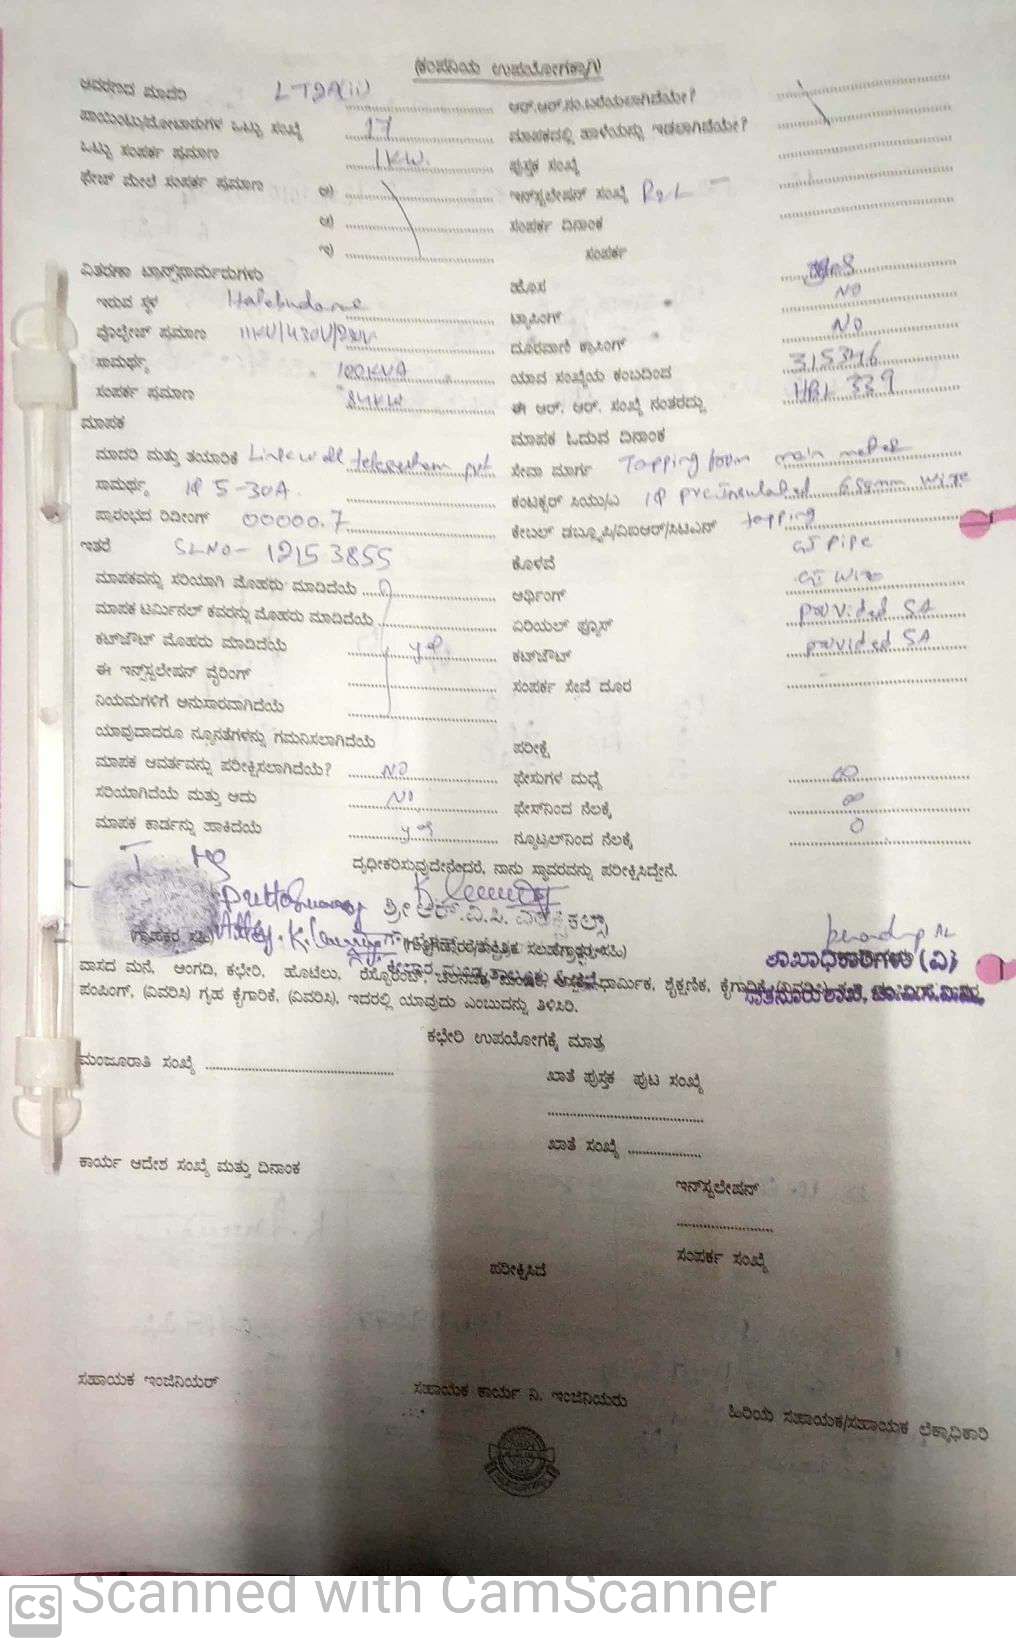 (ಕಂಪನಿಯ ಉಪಯೋಗಕ್ಕಾಗಿ)
ಆವರಣದ ಮಾದರಿ LT2A(ii) ಆರ್.ಆರ್.ನಂ.ಬರೆಯಲಾಗಿದೆಯೇ?
ಪಾಯಿಂಟು/ಮೋಟಾರುಗಳ ಒಟ್ಟು ಸಂಖ್ಯೆ 17 ಮಾಪಕದಲ್ಲಿ ಹಾಳೆಯನ್ನು ಇಡಲಾಗಿದೆಯೇ?
ಒಟ್ಟು ಸಂಪರ್ಕ ಪ್ರಮಾಣ 1KW. ಪುಸ್ತಕ ಸಂಖ್ಯೆ
ಫೇಜ್ ಮೇಲೆ ಸಂಪರ್ಕ ಪ್ರಮಾಣ ಅ) ಇನ್‌ಸ್ಟಲೇಷನ್ ಸಂಖ್ಯೆ
ಆ) ಸಂಪರ್ಕ ದಿನಾಂಕ
ಇ) ಸಂಪರ್ಕ
ವಿತರಣಾ ಟ್ರಾನ್ಸ್‌ಫಾರ್ಮರುಗಳು
ಇರುವ ಸ್ಥಳ ಹೊಸ
ವೋಲ್ಟೇಜ್ ಪ್ರಮಾಣ ಟ್ಯಾಪಿಂಗ್ NO
ಸಾಮರ್ಥ್ಯ 100KVA ದೂರವಾಣಿ ಕ್ರಾಸಿಂಗ್ NO
ಸಂಪರ್ಕ ಪ್ರಮಾಣ 84KW ಯಾವ ಸಂಖ್ಯೆಯ ಕಂಬದಿಂದ
ಮಾಪಕ ಈ ಆರ್. ಆರ್. ಸಂಖ್ಯೆ ನಂತರದ್ದು HBL 339
ಮಾಪಕ ಓದುವ ದಿನಾಂಕ
ಮಾದರಿ ಮತ್ತು ತಯಾರಿಕೆ Linkwell ಸೇವಾ ಮಾರ್ಗ Tapping from main meter
ಸಾಮರ್ಥ್ಯ 1Φ 5-30A. ಕಂಟಕ್ಟರ್ ಸಿಯು/ಎ 1Φ preinsulated wire
ಪ್ರಾರಂಭದ ರಿಡಿಂಗ್ 00000.7 ಕೇಬಲ್ ಡಬ್ಲ್ಯೂಪಿ/ವಿಐಆರ್/ಸಿಟಿಎಸ್ tapping
ಇತರೆ SLNO- 12153855 ಕೊಳವೆ GI Pipe
ಮಾಪಕವನ್ನು ಸರಿಯಾಗಿ ಮೊಹರು ಮಾಡಿದೆಯೆ ಆರ್ಥಿಂಗ್ GI Wire
ಮಾಪಕ ಟರ್ಮಿನಲ್ ಕವರನ್ನು ಮೊಹರು ಮಾಡಿದೆಯೆ ಏರಿಯಲ್ ಫ್ಯೂಸ್ provided 5A
ಕಟ್‌ಔಟ್ ಮೊಹರು ಮಾಡಿದೆಯೆ yes ಕಟ್‌ಔಟ್ provided 5A
ಈ ಇನ್‌ಸ್ಟಲೇಷನ್ ವೈರಿಂಗ್ ಸಂಪರ್ಕ ಸೇವೆ ದೂರ
ನಿಯಮಗಳಿಗೆ ಅನುಸಾರವಾಗಿದೆಯೆ
ಯಾವುದಾದರೂ ನ್ಯೂನತೆಗಳನ್ನು ಗಮನಿಸಲಾಗಿದೆಯೆ ಪರೀಕ್ಷೆ
ಮಾಪಕ ಆವರ್ತವನ್ನು ಪರೀಕ್ಷಿಸಲಾಗಿದೆಯೆ? NO ಫೇಸುಗಳ ಮಧ್ಯೆ ∞
ಸರಿಯಾಗಿದೆಯೆ ಮತ್ತು ಅದು NO ಫೇಸ್‌ನಿಂದ ನೆಲಕ್ಕೆ ∞
ಮಾಪಕ ಕಾರ್ಡನ್ನು ಹಾಕಿದೆಯೆ yes ನ್ಯೂಟ್ರಲ್‌ನಿಂದ ನೆಲಕ್ಕೆ 0
ದೃಢೀಕರಿಸುವುದೇನೆಂದರೆ, ನಾನು ಸ್ಥಾವರವನ್ನು ಪರೀಕ್ಷಿಸಿದ್ದೇನೆ.
ಶ್ರೀ ಆರ್.ವಿ.ಪಿ.
ಶಾಖಾಧಿಕಾರಿಗಳು (ವಿ)
ವಾಸದ ಮನೆ, ಅಂಗಡಿ, ಕಛೇರಿ, ಹೊಟೆಲು, ರೆಸ್ಟೋರೆಂಟ್, ಧಾರ್ಮಿಕ, ಶೈಕ್ಷಣಿಕ, ಕೈಗಾರಿಕೆ
ಪಂಪಿಂಗ್, (ವಿವರಿಸಿ) ಗೃಹ ಕೈಗಾರಿಕೆ, (ವಿವರಿಸಿ), ಇದರಲ್ಲಿ ಯಾವುದು ಎಂಬುದನ್ನು ತಿಳಿಸಿರಿ.
ಕಛೇರಿ ಉಪಯೋಗಕ್ಕೆ ಮಾತ್ರ
ಮಂಜೂರಾತಿ ಸಂಖ್ಯೆ
ಖಾತೆ ಪುಸ್ತಕ ಪುಟ ಸಂಖ್ಯೆ
ಖಾತೆ ಸಂಖ್ಯೆ
ಕಾರ್ಯ ಆದೇಶ ಸಂಖ್ಯೆ ಮತ್ತು ದಿನಾಂಕ
ಇನ್‌ಸ್ಟಲೇಷನ್
ಸಂಪರ್ಕ ಸಂಖ್ಯೆ
ಪರೀಕ್ಷಿಸಿದೆ
ಸಹಾಯಕ ಇಂಜಿನಿಯರ್
ಸಹಾಯಕ ಕಾರ್ಯ ನಿ. ಇಂಜಿನಿಯರು
ಹಿರಿಯ ಸಹಾಯಕ/ಸಹಾಯಕ ಲೆಕ್ಕಾಧಿಕಾರಿ
CS Scanned with CamScanner